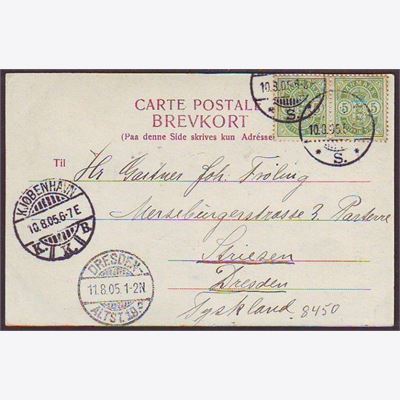 CARTE POSTALE
BREVKORT
(Paa denne Side skrives kun Adressen)
10.8.05.6-7E
S.
5 5
10.8.05.
S.
Til
Hr Gartner Joh. Fröling
Merseburgerstrasse 3 Parterre
Striesen
Dresden
Tyskland
8450
KJØBENHAVN
10.8.05.6-7E
K. K. B.
DRESDEN-
11.8.05.1-2N
ALTST.